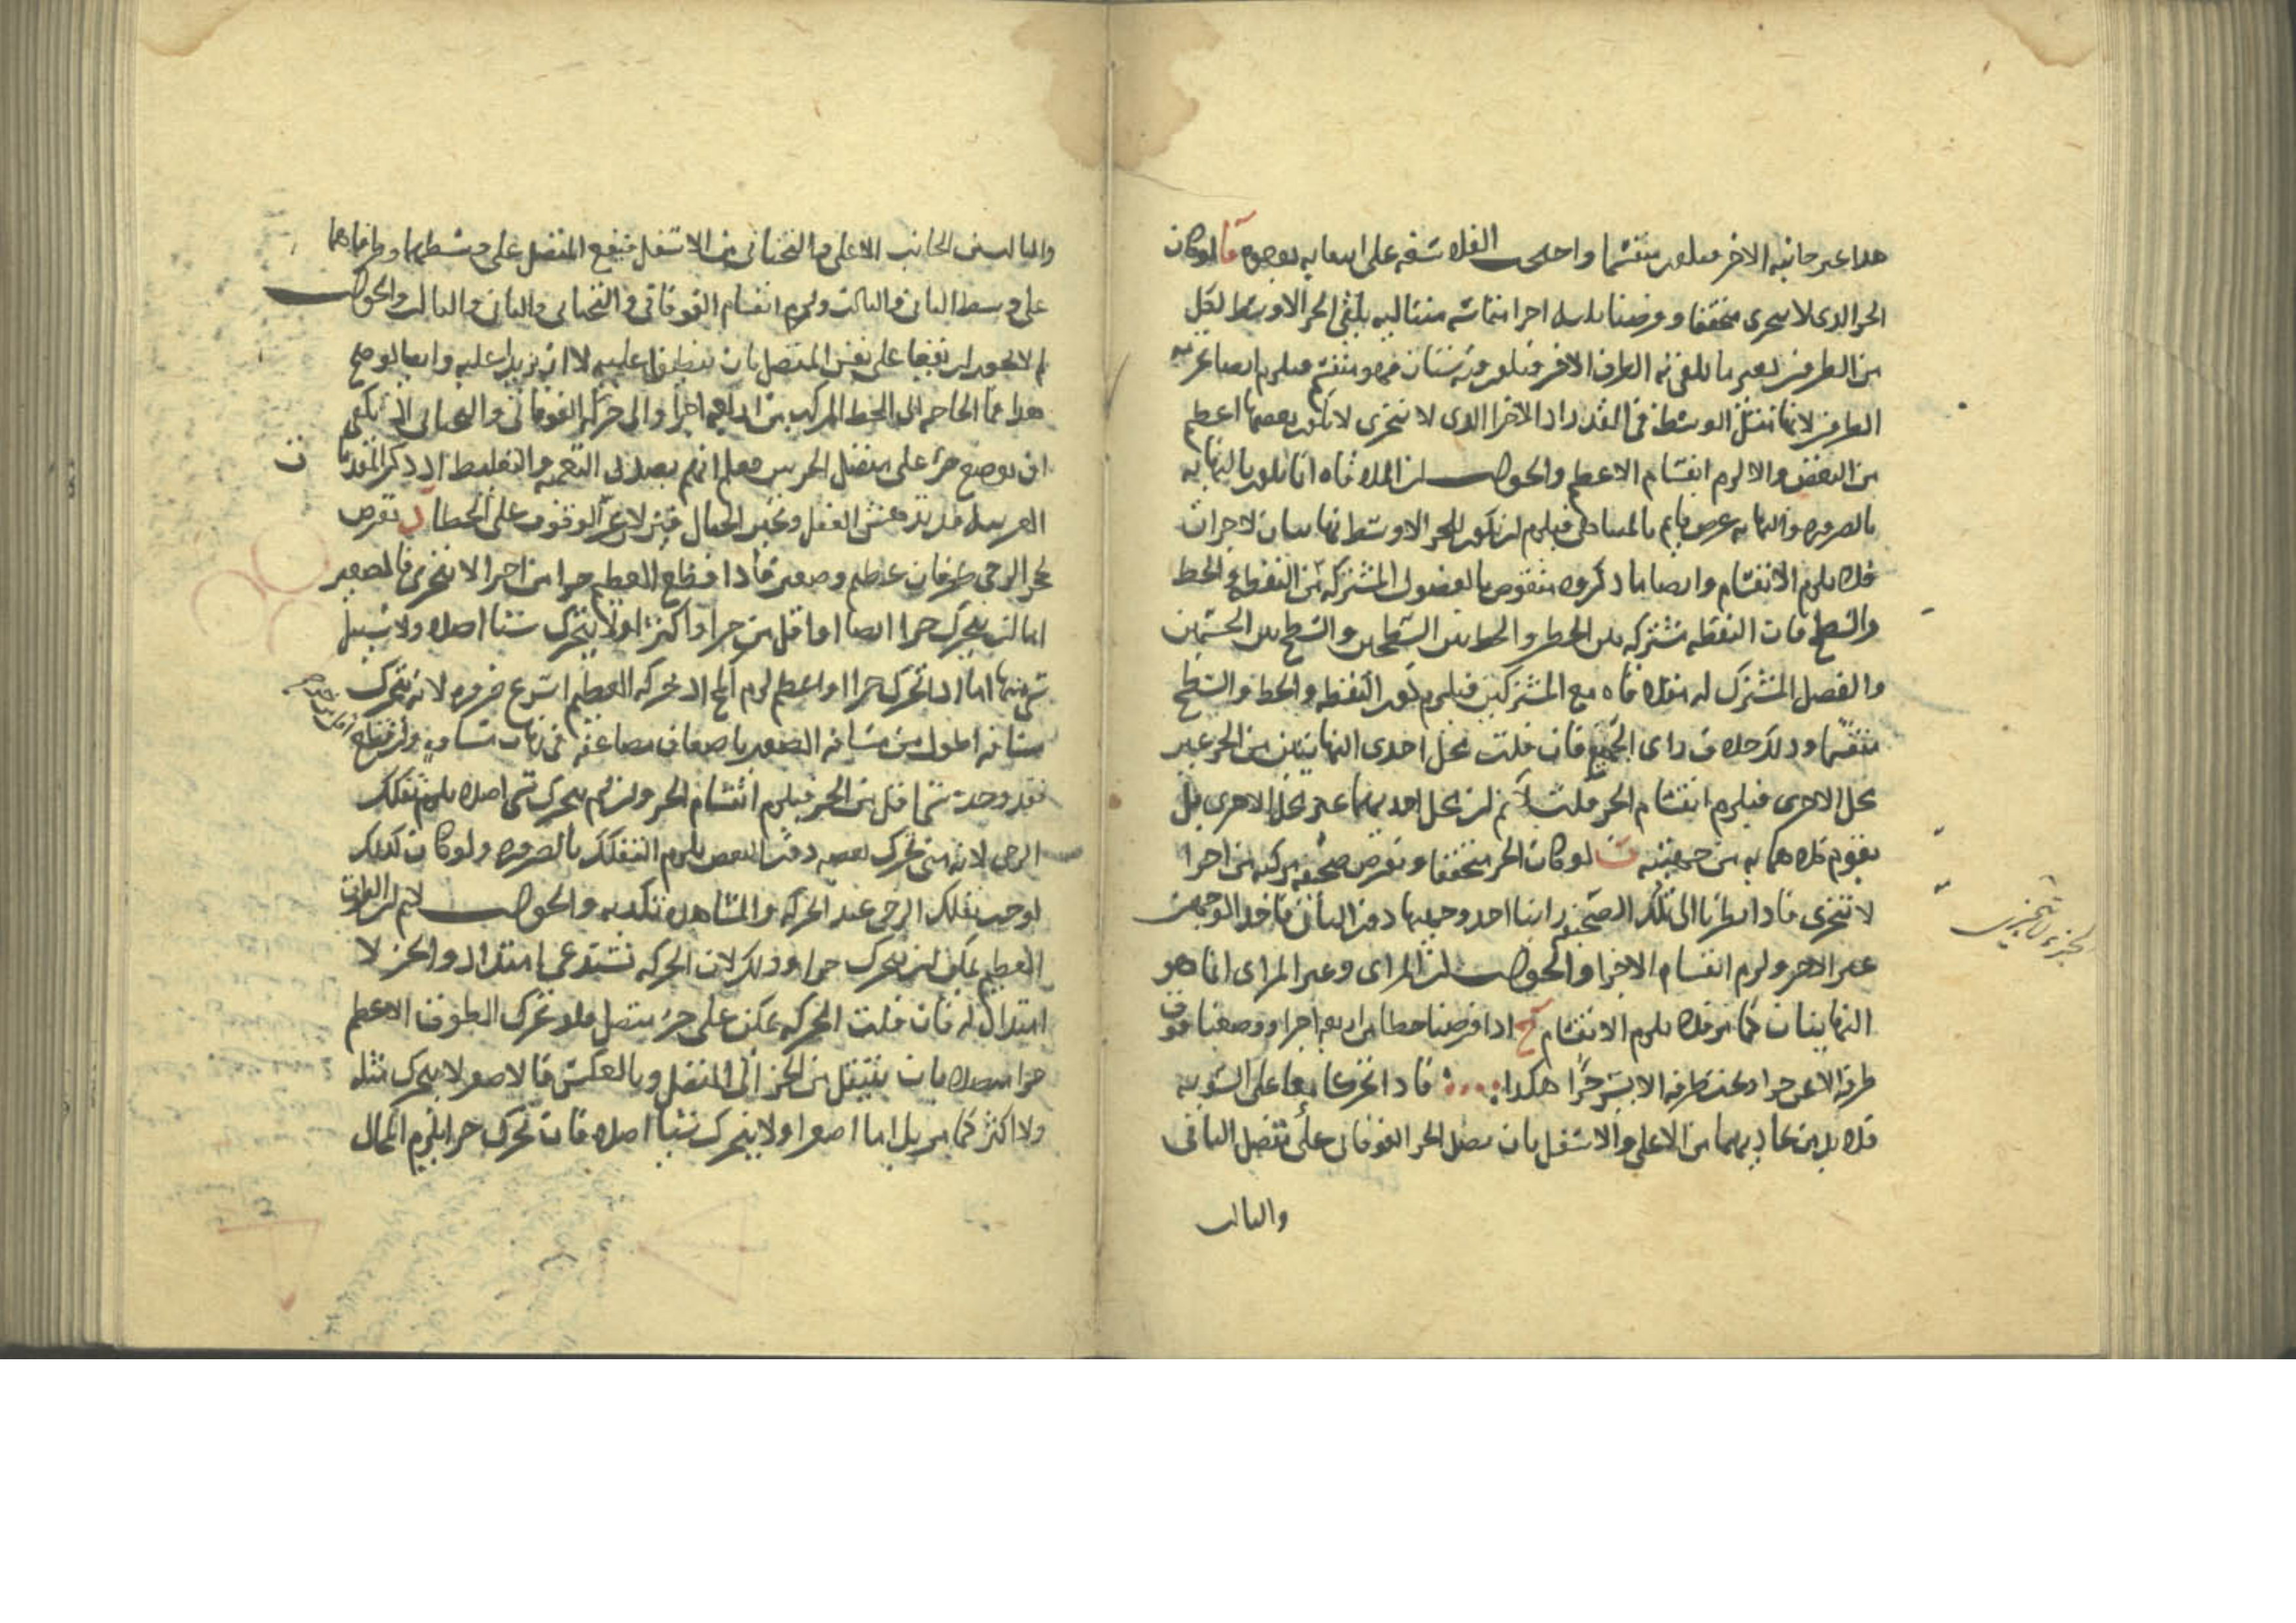 هذا غير جانبه الاخر فيكون منقسما واحتجت الفلاسفة على اثباته بوجوه آ لو كان
الجز الذى لا يتجزى متحققا وفرضنا ثلثه اجزا متماسه متتاليه يلقى الجز الاوسط لكل
من الطرفين بغير ما يلقى به الطرف الاخر فيكون فيه شيئان فهو منقسم فيلزم ايضا تجزيه
الطرفين لانهما مثل الوسط فى القدر اذ الاجزا التى لا تتجزى لا يكون بعضها اعظم
من البعض والا لزم انقسام الاعظم والجواب ان الملاقاه انما يكون بالنهايه
بالضروره والنهايه عرض قايم بالمتناهى فيلزم ان يكون للجز الاوسط نهايتان لا جزان
فلا يلزم الانقسام وايضا ما ذكروه منقوض بالفصول المشتركه من النقطه والخط
والسطح فان النقطه مشتركه بين الخطين والخط بين السطحين والسطح بين الجسمين
والفصل المشترك له ملاقاه مع المشتركين فيلزم كون النقطه والخط والسطح
منقسما وذلك خلاف راى الجميع فان قلت محل احدى النهايتين من الجز غير
محل الاخرى فيلزم انقسام الجز قلت لا نم ان محل احديهما غير محل الاخرى بل
يقوم كلاهما به من جهتيه ب لو كان الجز متحققا ونفرض صحيفه مركبه من اجزا
لا تتجزى فاذا نظرنا الى تلك الصحيفه راينا احد وجهيها دون الثانى فاحد الوجهين
غير الاخر ولزم انقسام الاجزا والجواب ان المراى وغير المراى انما هو
النهايتان كما مر فلا يلزم الانقسام ج اذا فرضنا خطا من اربعه اجزا ووضعنا فوق
طرفه الايمن جزا وتحت طرفه الايسر جزًا هكذا فاذا تحركا معا على السويه
فلا بد من تحاذيهما من الاعلى والاسفل بان يصل الجز الفوقانى على متصل الثانى
والثالث
الجزء لا يتجزى
والثالث من الجانب الاعلى والتحتانى من الاسفل فيقع المتصل على وسطهما وطرفاهما
على وسط الثانى والثالث ولزم انقسام الفوقانى والتحتانى والثانى والثالث والجواب
لم لا يجوز ان يقعا على نفس المتصل بان ينطبق عليه لا ان يزيد عليه وايضا لو صح
هذا فما الحاجه الى الخط المركب من اربعه اجزا والى حركه الفوقانى والتحتانى اذ يكفى
ان يوضع جزء على متصل الجزين فعلم انهم بصدد التعميه والتغليط اذ ذكر المقدمات
الغريبه قد يدهش العقل ويحير الخيال فيزلان عن الوقوف على الخطا د نفرض
لحجر الرحى طرفان عظيم وصغير فاذا قطع العظيم جزا من اجزا لا تتجزى فالصغير
اما ان يتحرك جزا ايضا او اقل من جزا واكثر اولا يتحرك شيئا اصلا ولا سبيل
الى شى منها اما اذا تحرك جزا او اعظم لزم المح اذ حركه العظيم اسرع ضروره لانه يتحرك
مسافه اطول من مسافه الصغير باضعاف مضاعفه فى زمان متساو وان قطع اقل من جزء
فقد وجد شى اقل من الجز فيلزم انقسام الجز وان لم يتحرك شى اصلا يلزم تفكك
الرحى لانه متى تحرك بعضه دون البعض يلزم التفكك بالضروره ولو كان كذلك
لوجب تفكك الرحى عند الحركه والمشاهده تكذبه والجواب لا نم ان الطرف
العظيم يمكن ان يتحرك جزا وذلك لان الحركه تستدعى امتدادا والجز لا
امتداد له فان قلت الحركه يمكن على جزء متصل فلو تحرك الطرف الاعظم
جزا متصلا بان ينتقل من الجز الى المتصل وبالعكس فالاصغر لا يتحرك مثله
ولا اكثر كما مر بل اما اصغر اولا يتحرك شيئا اصلا فان تحرك جزا يلزم المحال